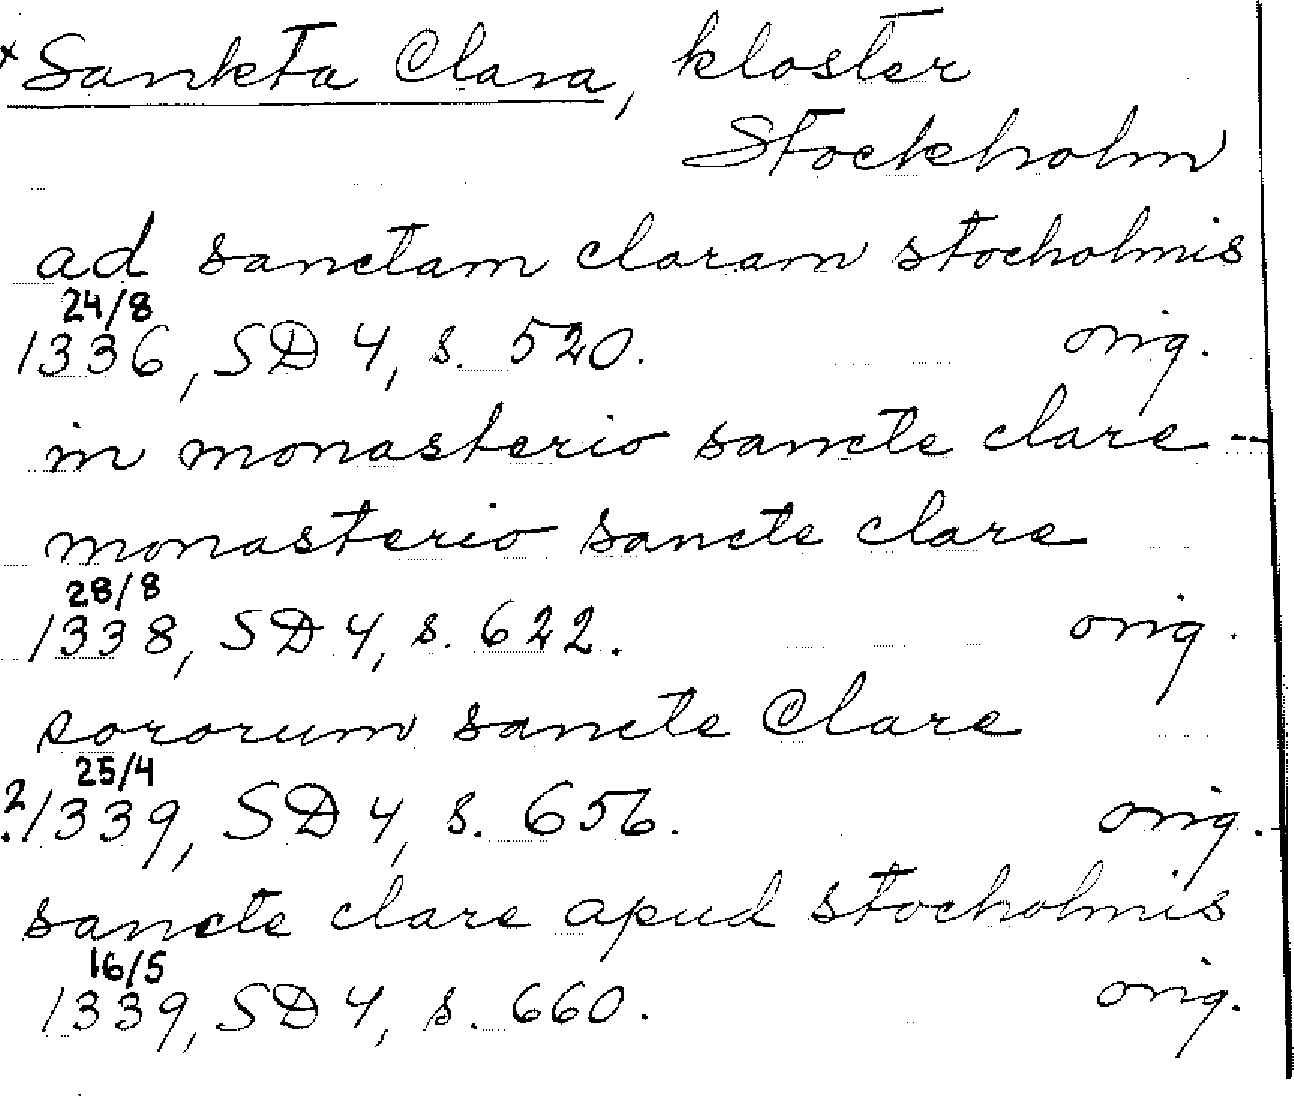 x Sankta Clara, kloster
Stockholm
ad sanctam claram stocholmis
24/8
1336, SD 4, s. 520. orig.
in monasterio sancte clare --
monasterio sancte clare
28/8
1338, SD 4, s. 622. orig.
sororum sancte Clare
25/4
? 1339, SD 4, s. 656. orig.
sancte clare apud stocholmis
16/5
1339, SD 4, s. 660. orig.